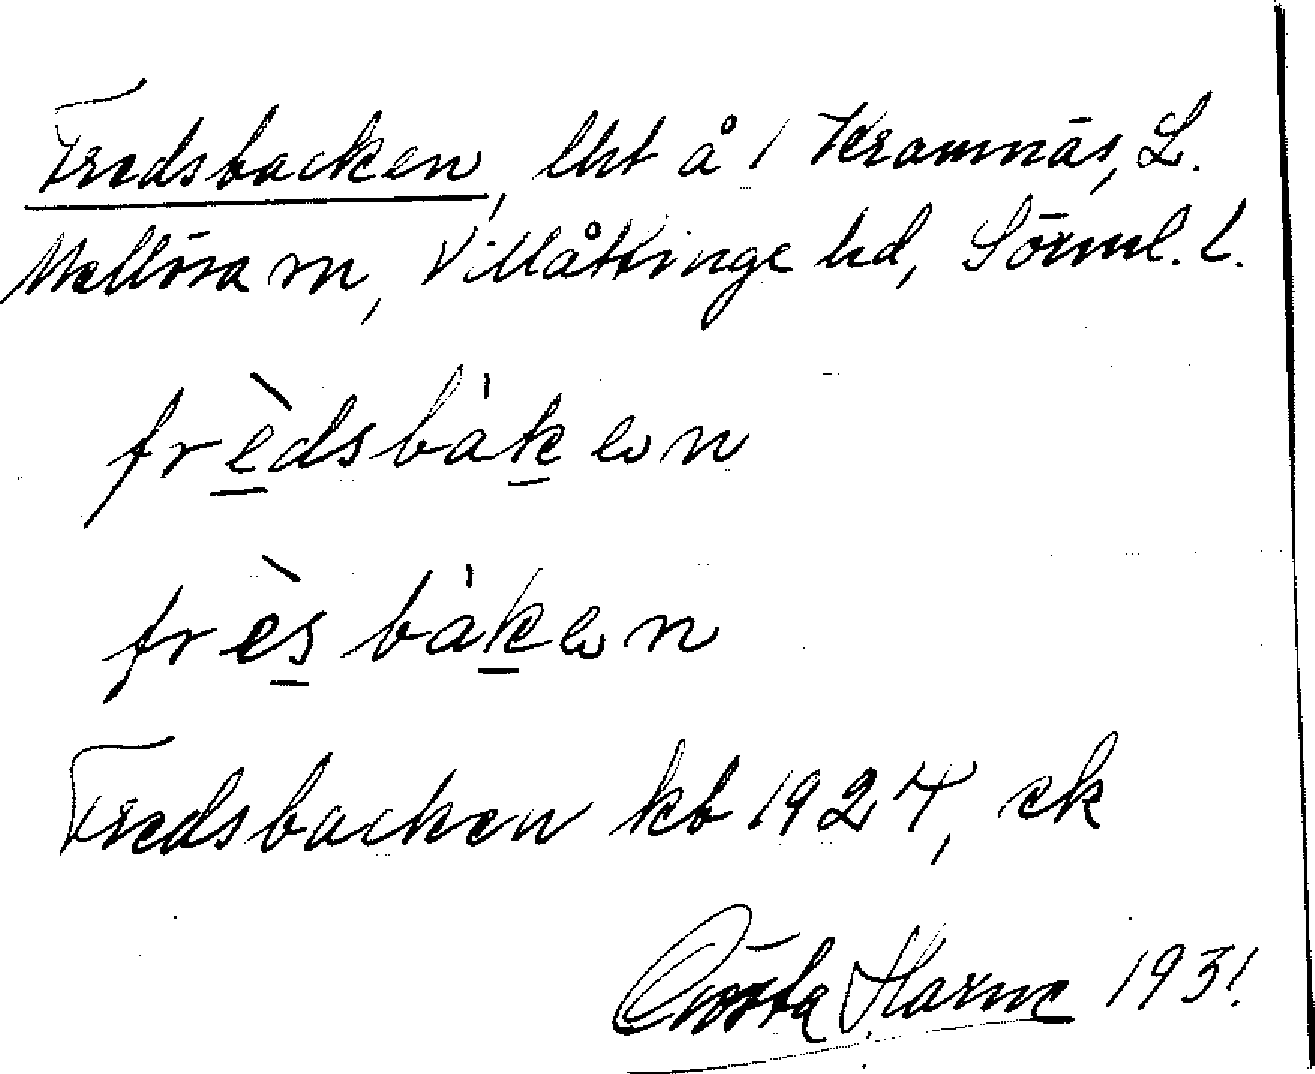 Fredsbacken, lht å 1 Kramnäs, L.
Mellösa sn, Villåttinge hd, Sörml. l.
frèdsbàken
frèsbàken
Fredsbacken kb 1927, ek
Gösta Harme 1931.